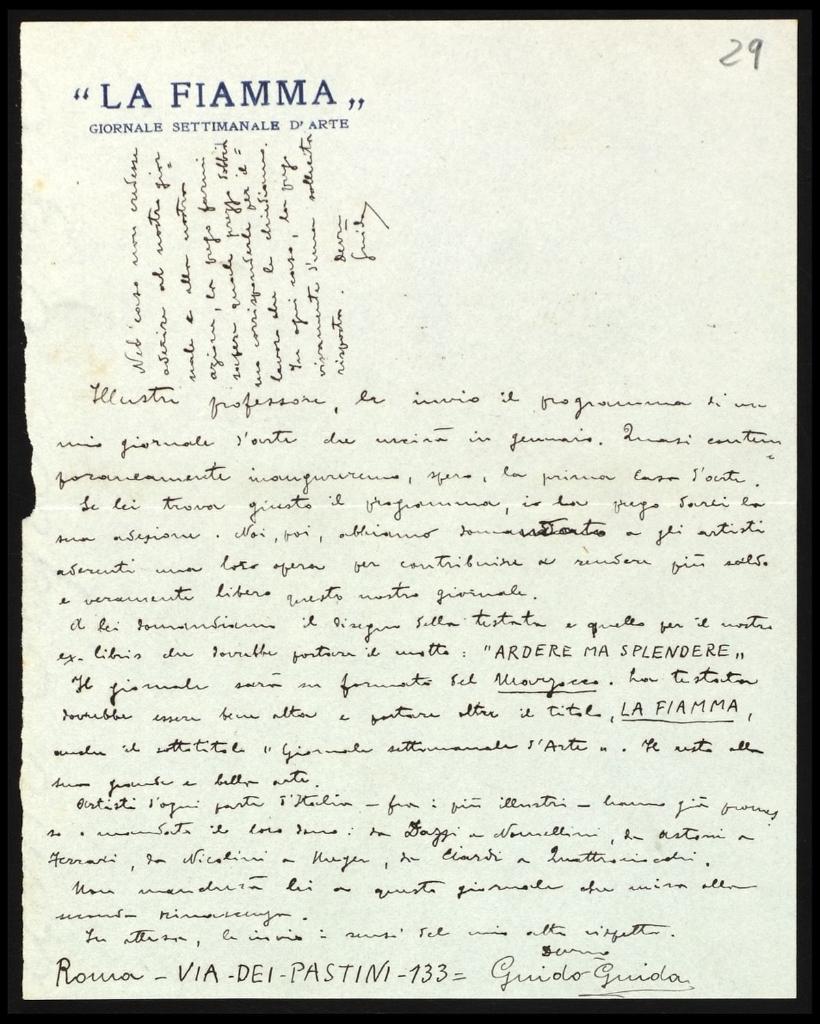 29
“ LA FIAMMA „
GIORNALE SETTIMANALE D'ARTE
Nel caso non credesse
aderire al nostro gior=
nale e alla nostra
azione, la prego farmi
sapere quale prezzo dobbia=
mo corrisponderle per il
lavoro che le chiediamo.
In ogni caso, la prego
vivamente d'una sollecita
risposta. Dev.mo
Guida
Illustre professore, le invio il programma di un
mio giornale d'arte che uscirà in gennaio. Quasi contem=
poraneamente inaugureremo, spero, la prima Casa d'arte.
Se lei trova giusto il programma, io la prego darci la
sua adesione. Noi, poi, abbiamo domandato a gli artisti
aderenti una loro opera per contribuire a rendere più saldo
e veramente libero questo nostro giornale.
A lei domandiamo il disegno della testata e quello per il nostro
ex-libris che dovrebbe portare il motto: "ARDERE MA SPLENDERE„
Il giornale sarà su formato del Marzocco. La testata
dovrebbe essere ben alta e portare oltre il titolo, LA FIAMMA,
anche il sottotitolo "Giornale settimanale d'Arte". Il resto alla
sua grande e bella arte.
Artisti d'ogni parte d'Italia - fra i più illustri - hanno già promes
so o mandato il loro dono: da Dazzi a Nomellini, da Astorri a
Ferrari, da Nicolini a Kruger, da Ciardi a Quattrociocchi.
Non mancherà lei a questo giornale che mira alla
seconda rinascenza.
In attesa, le invio i sensi del mio alto rispetto.
Dev.mo
Roma - VIA - DEI - PASTINI - 133 = Guido Guida